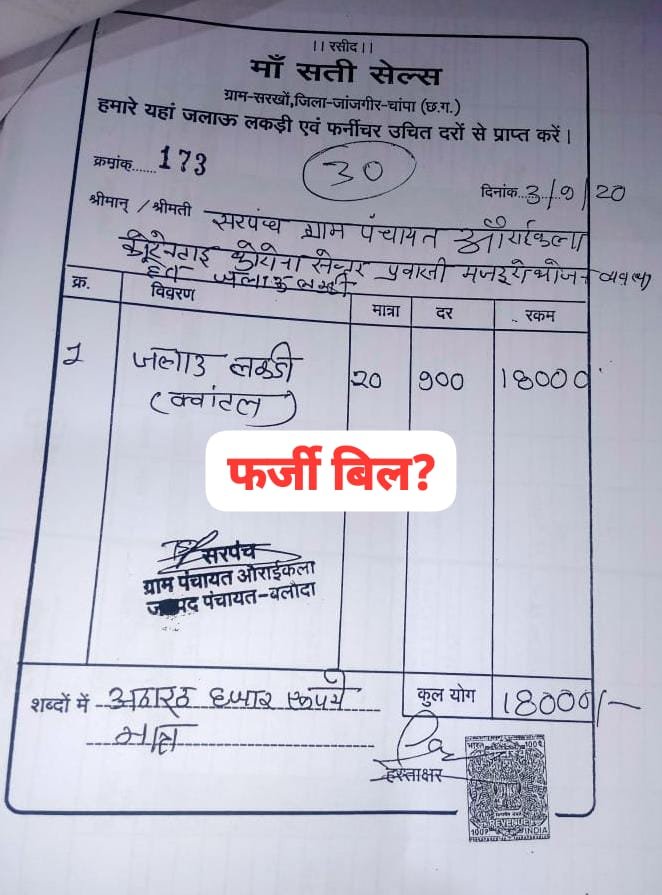 ।। रसीद ।।
माँ सती सेल्स
ग्राम-सरखों, जिला-जांजगीर-चांपा (छ.ग.)
हमारे यहां जलाऊ लकड़ी एवं फर्नीचर उचित दरों से प्राप्त करें।
क्रमांक......173
30
दिनांक 3/9/20
श्रीमान् / श्रीमती सरपंच ग्राम पंचायत औराईकला
कोरोना सेन्टर प्रवासी भोजन व्यवस्था
हेतु जलाऊ लकड़ी
क्र. विवरण मात्रा दर रकम
1 जलाउ लकडी 20 900 18000
(क्वांटल)
फर्जी बिल?
सरपंच
ग्राम पंचायत औराईकला
जनपद पंचायत-बलौदा
कुल योग 18000/-
शब्दों में अठारह हजार रूपये
मात्र
हस्ताक्षर
भारत 100प.
REVENUE
100P INDIA